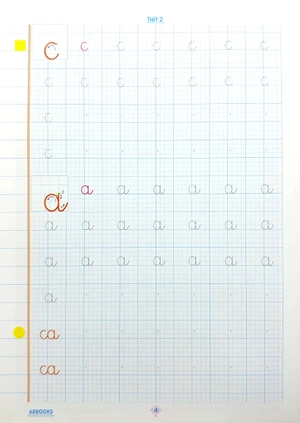 Tiết 2
c c c c c c c
c c c c c c c
c
c
a a a a a a a
a a a a a a a
a a a a a a a
a
ca
ca
ABBOOKS